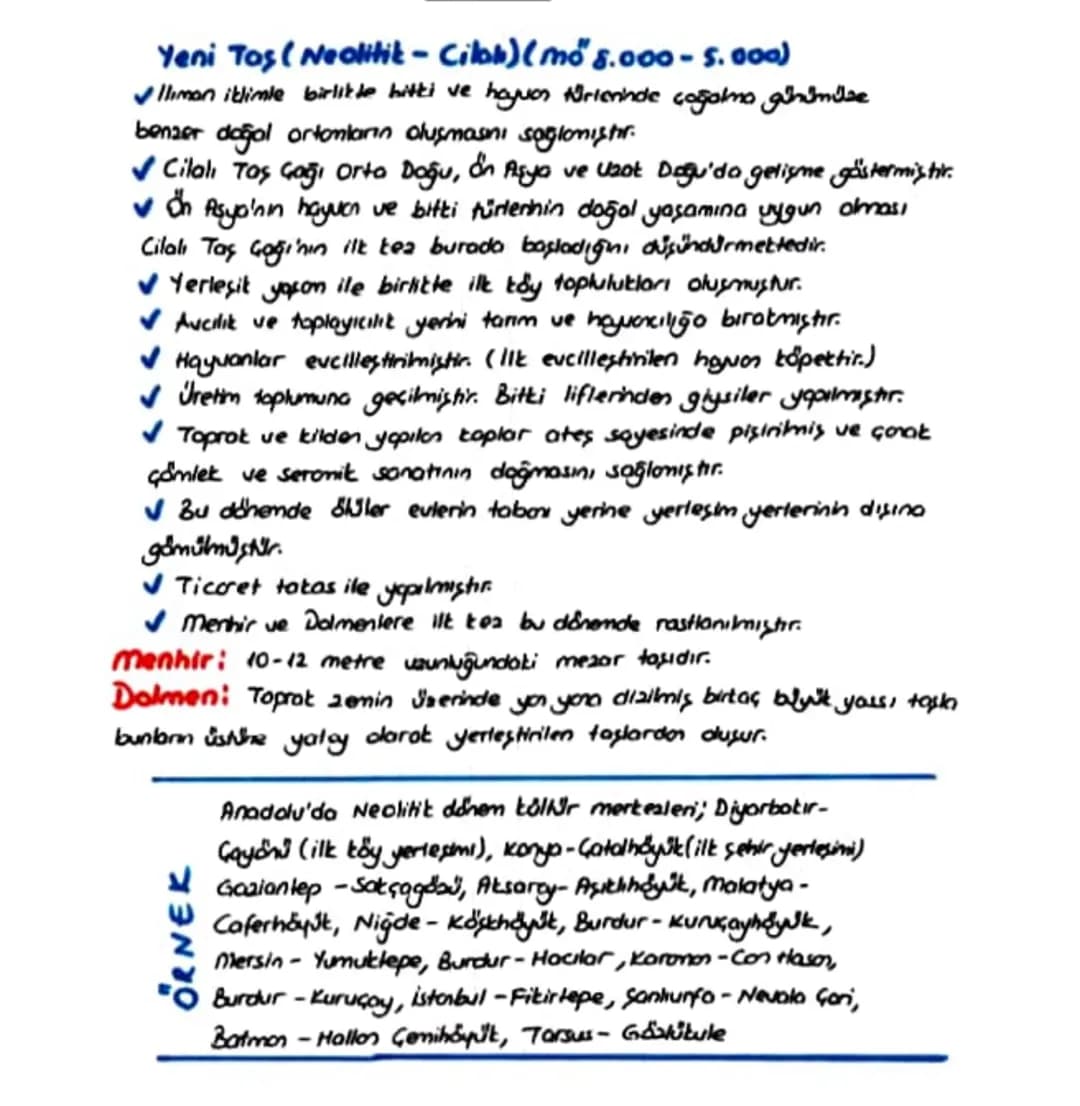 Yeni Taş (Neolitik - Cilalı) (mö 8.000 - 5.000)
✓ Ilıman iklimle birlikte bitki ve hayvan türlerinde çoğalma günümüze
benzer doğal ortamların oluşmasını sağlamıştır.
✓ Cilalı Taş Çağı Orta Doğu, Ön Asya ve Uzak Doğu'da gelişme göstermiştir.
✓ Ön Asya'nın hayvan ve bitki türlerinin doğal yaşamına uygun olması
Cilalı Taş Çağı'nın ilk kez burada başladığını düşündürmektedir.
✓ Yerleşik yaşam ile birlikte ilk köy toplulukları oluşmuştur.
✓ Avcılık ve toplayıcılık yerini tarım ve hayvancılığa bırakmıştır.
✓ Hayvanlar evcilleştirilmiştir. (İlk evcilleştirilen hayvan köpektir.)
✓ Üretim toplumuna geçilmiştir. Bitki liflerinden giysiler yapılmıştır.
✓ Toprak ve kilden yapılan kaplar ateş sayesinde pişirilmiş ve çanak
çömlek ve seramik sanatının doğmasını sağlamıştır.
✓ Bu dönemde ölüler evlerin tabanı yerine yerleşim yerlerinin dışına
gömülmüştür.
✓ Ticaret takas ile yapılmıştır.
✓ Menhir ve Dolmenlere ilk kez bu dönemde rastlanılmıştır.
Menhir: 10-12 metre uzunluğundaki mezar taşıdır.
Dolmen: Toprak zemin üzerinde yan yana dizilmiş birkaç büyük yassı taşla
bunların üstüne yatay olarak yerleştirilen taşlardan oluşur.
ÖRNEK
Anadolu'da Neolitik dönem kültür merkezleri; Diyarbakır-
Çayönü (ilk köy yerleşimi), Konya-Çatalhöyük (ilk şehir yerleşimi)
Gaziantep - Sakçagözü, Aksaray- Aşıklıhöyük, Malatya -
Caferhöyük, Niğde - Köşkhöyük, Burdur - Kuruçayhöyük,
Mersin - Yumuktepe, Burdur - Hacılar, Karaman - Can Hasan,
Burdur - Kuruçay, İstanbul - Fikirtepe, Şanlıurfa - Nevala Çori,
Batman - Hallan Çemihöyük, Tarsus - Gözlükule